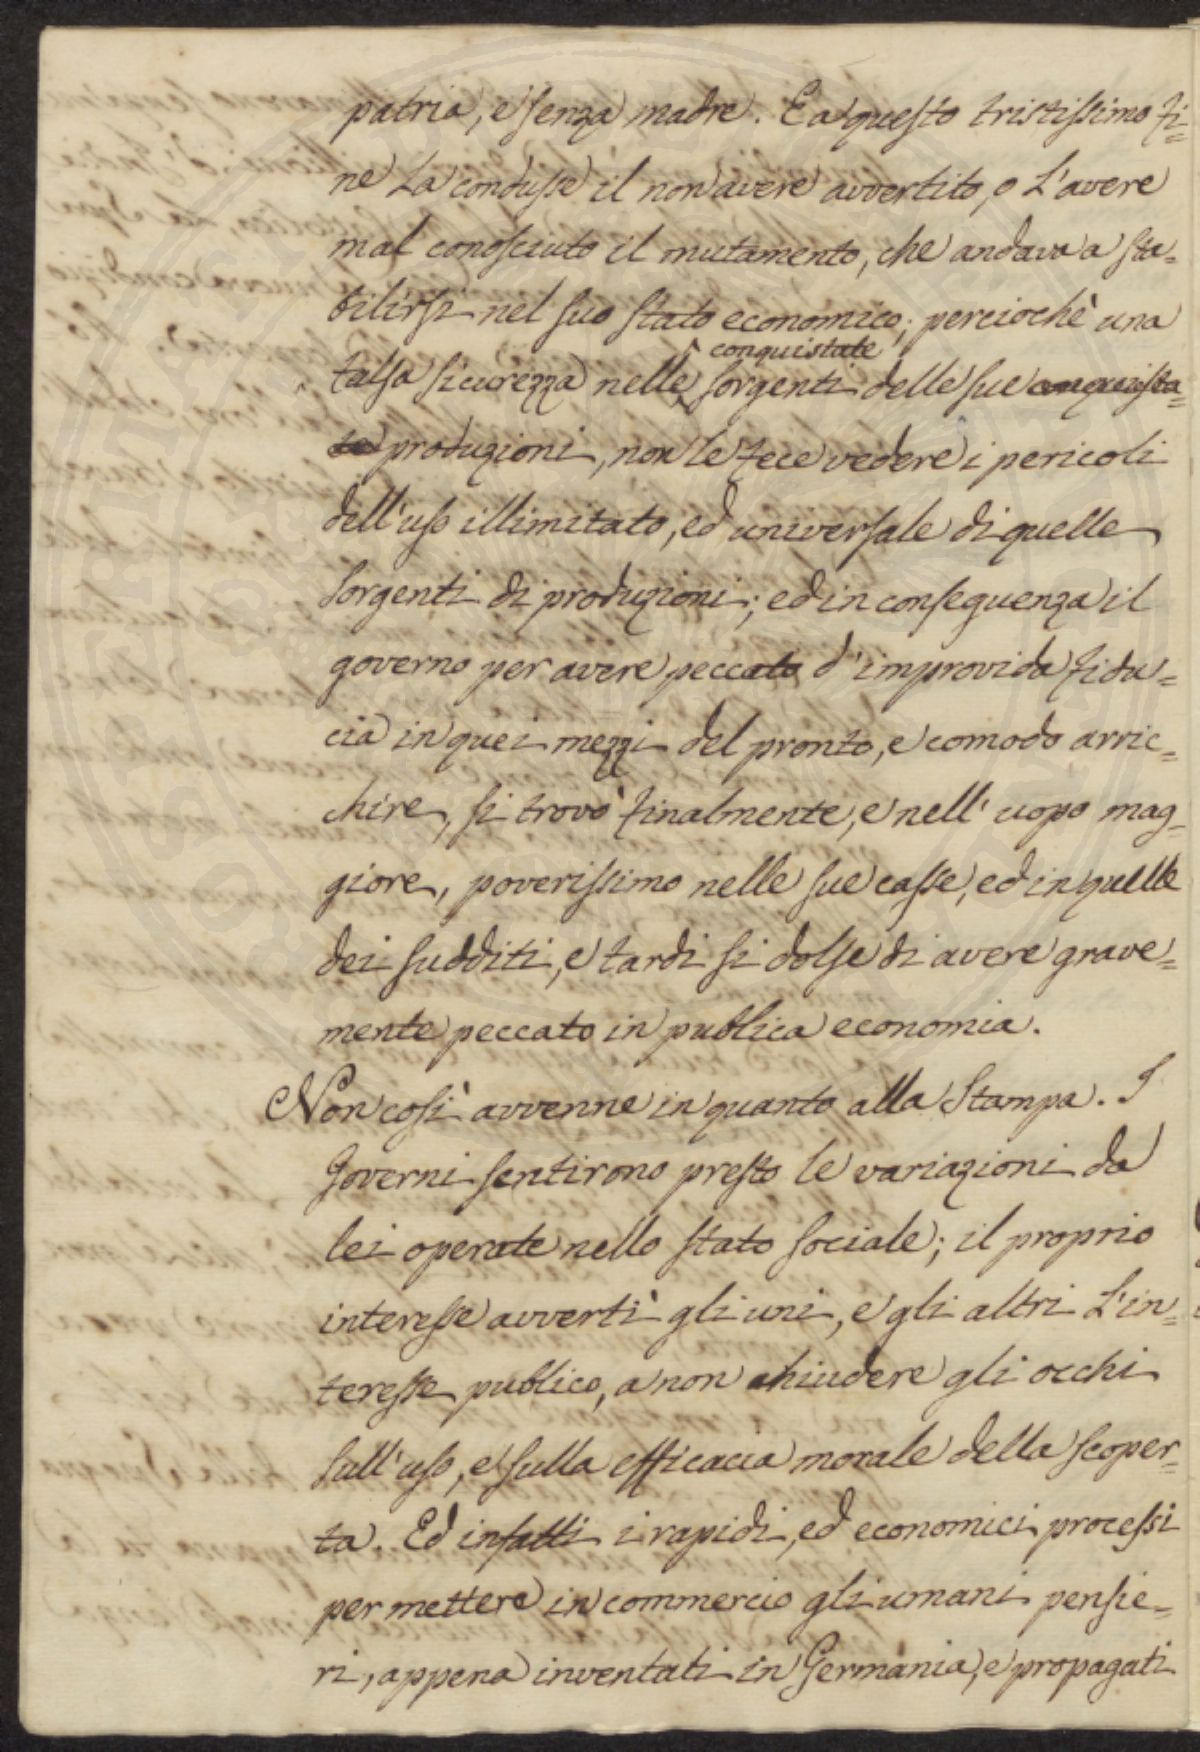 patria, e senza madre. E a questo tristissimo fi=
ne La condusse il non avere avvertito, o L'avere
mal conosciuto il mutamento, che andava a sta=
bilirsi nel suo stato economico; perciochè una
conquistate
falsa sicurezza nelle sorgenti delle sue conquista=
te produzioni, non le fece vedere i pericoli
dell'uso illimitato, ed universale di quelle
sorgenti di produzioni; ed in conseguenza il
governo per avere peccato d'improvida fidu=
cia in quei mezzi del pronto, e comodo arric=
chire, si trovò finalmente, e nell'uopo mag=
giore, poverissimo nelle sue casse, ed in quelle
dei sudditi, e tardi si dolse di avere grave=
mente peccato in publica economia.
Non così avvenne in quanto alla Stampa. I
Governi sentirono presto le variazioni da
lei operate nello stato sociale; il proprio
interesse avvertì gli uni, e gli altri L'in=
teresse publico, a non chiudere gli occhi
sull'uso, e sulla efficacia morale della scoper=
ta. Ed infatti i rapidi, ed economici processi
per mettere in commercio gli umani pensie=
ri, appena inventati in Germania, e propagati